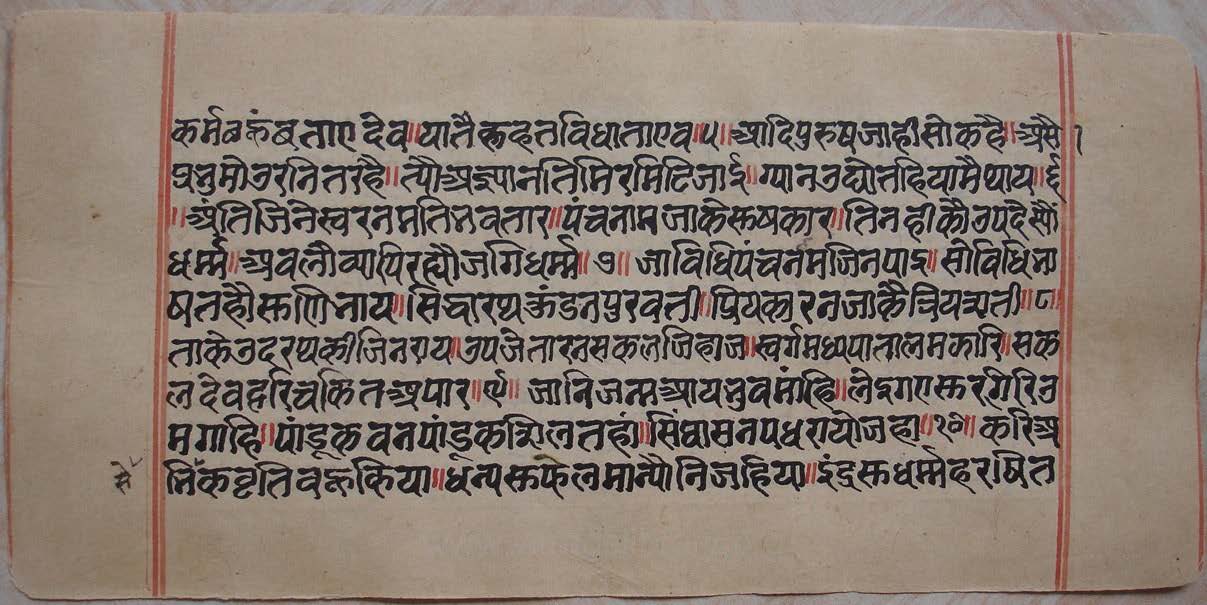 कर्म बताए देव॥ यातै कहत विधाता एव॥५॥ आदि पुरुष जाही सो कहै॥ असै
प्रभु मो उर नित रहै॥ त्यौ अज्ञान तिमिर मिटि जाई॥ ग्यान उद्योत हिया मै थाय॥६
॥अंति जिनेस्वर नमति अवतार॥ पंच नाम जाके सुषकार॥ तिनही कौ उपदेस्यौ
धर्म्म॥ अवलौ व्यापि रह्यौ जगि धर्म्म॥७॥ जा विधि पंच नाम जिन पाइ॥ सो विधि भा
षत हौ सुणि भाय॥ सिद्धारथ कुंडनपुर वती॥ प्रियकारन जाकै त्रिय सती॥८॥
ताके उदर थकी जिनराय॥ उपजे तारन सकल जिहाज॥ स्वर्ग मध्य पाताल मझारि॥ सक
ल देव हरि चकित अपार॥९॥ जानि जन्म आय भुव मांहि॥ लेइ गए सुरगिरि उ
मगाहि॥ पांडूक वन पांडूक सिल तहां॥ सिंघासन पधरायो जहा॥१०॥ करि अ
भिंक वृति वहु किया॥ धन्य सुफल मान्यौ निज हिया॥ इंद्र सुधर्म्म हरषित